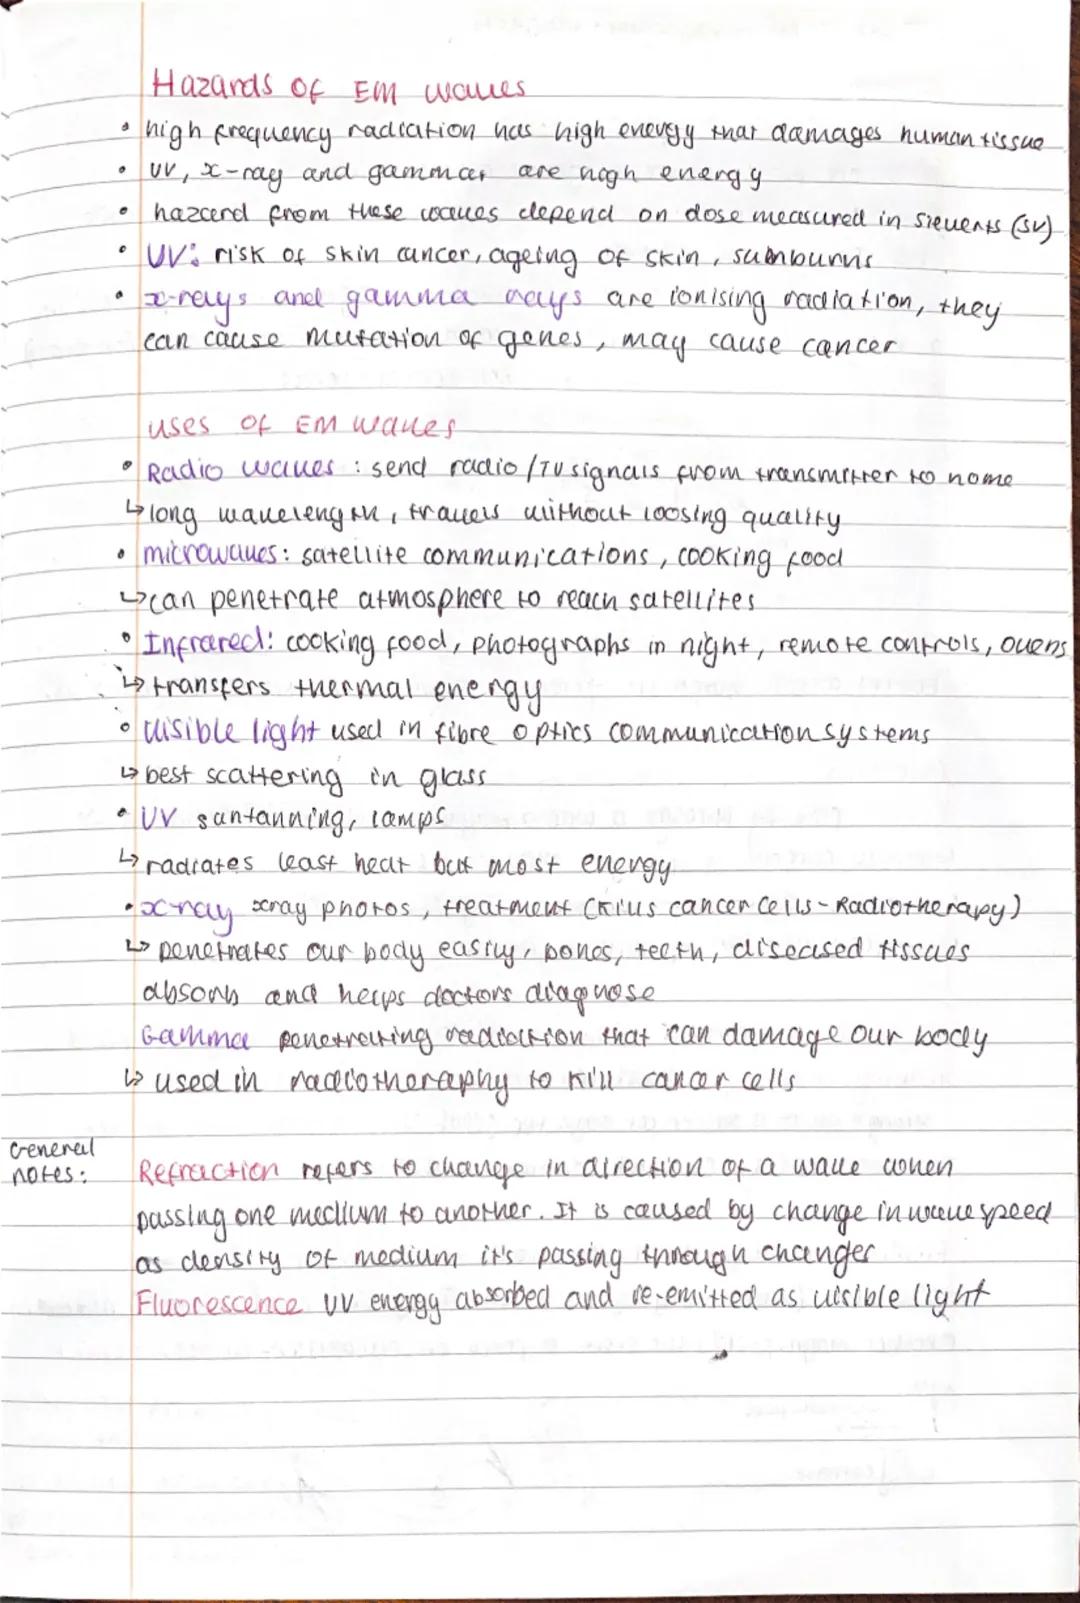 Hazards of EM waves
• high frequency radiation has high energy that damages human tissue
• UV, x-ray and gammar are high energy
• hazard from these waves depend on dose measured in sieverts (SV)
• UV: risk of skin cancer, ageing of skin, sunburns
• x-rays and gamma rays are ionising radiation, they
can cause mutation of genes, may cause cancer
uses of EM waves
• Radio waves : send radio/TV signals from transmitter to home
↳ long wavelength, travels without loosing quality
• microwaves: satellite communications, cooking food
↳ can penetrate atmosphere to reach satellites
• Infrared: cooking food, photographs in night, remote controls, ovens
↳ transfers thermal energy
• visible light used in fibre optics communication systems
↳ best scattering in glass
• UV suntanning, lamps
↳ radiates least heat but most energy
• x-ray xray photos, treatment (kills cancer cells - Radiotherapy)
↳ penetrates our body easily, bones, teeth, diseased tissues
absorb and helps doctors diagnose
Gamma penetrating radiation that can damage our body
↳ used in radiotheraphy to kill cancer cells
General
notes:
Refraction refers to change in direction of a wave when
passing one medium to another. It is caused by change in wave speed
as density of medium it's passing through changes
Fluorescence UV energy absorbed and re-emitted as visible light